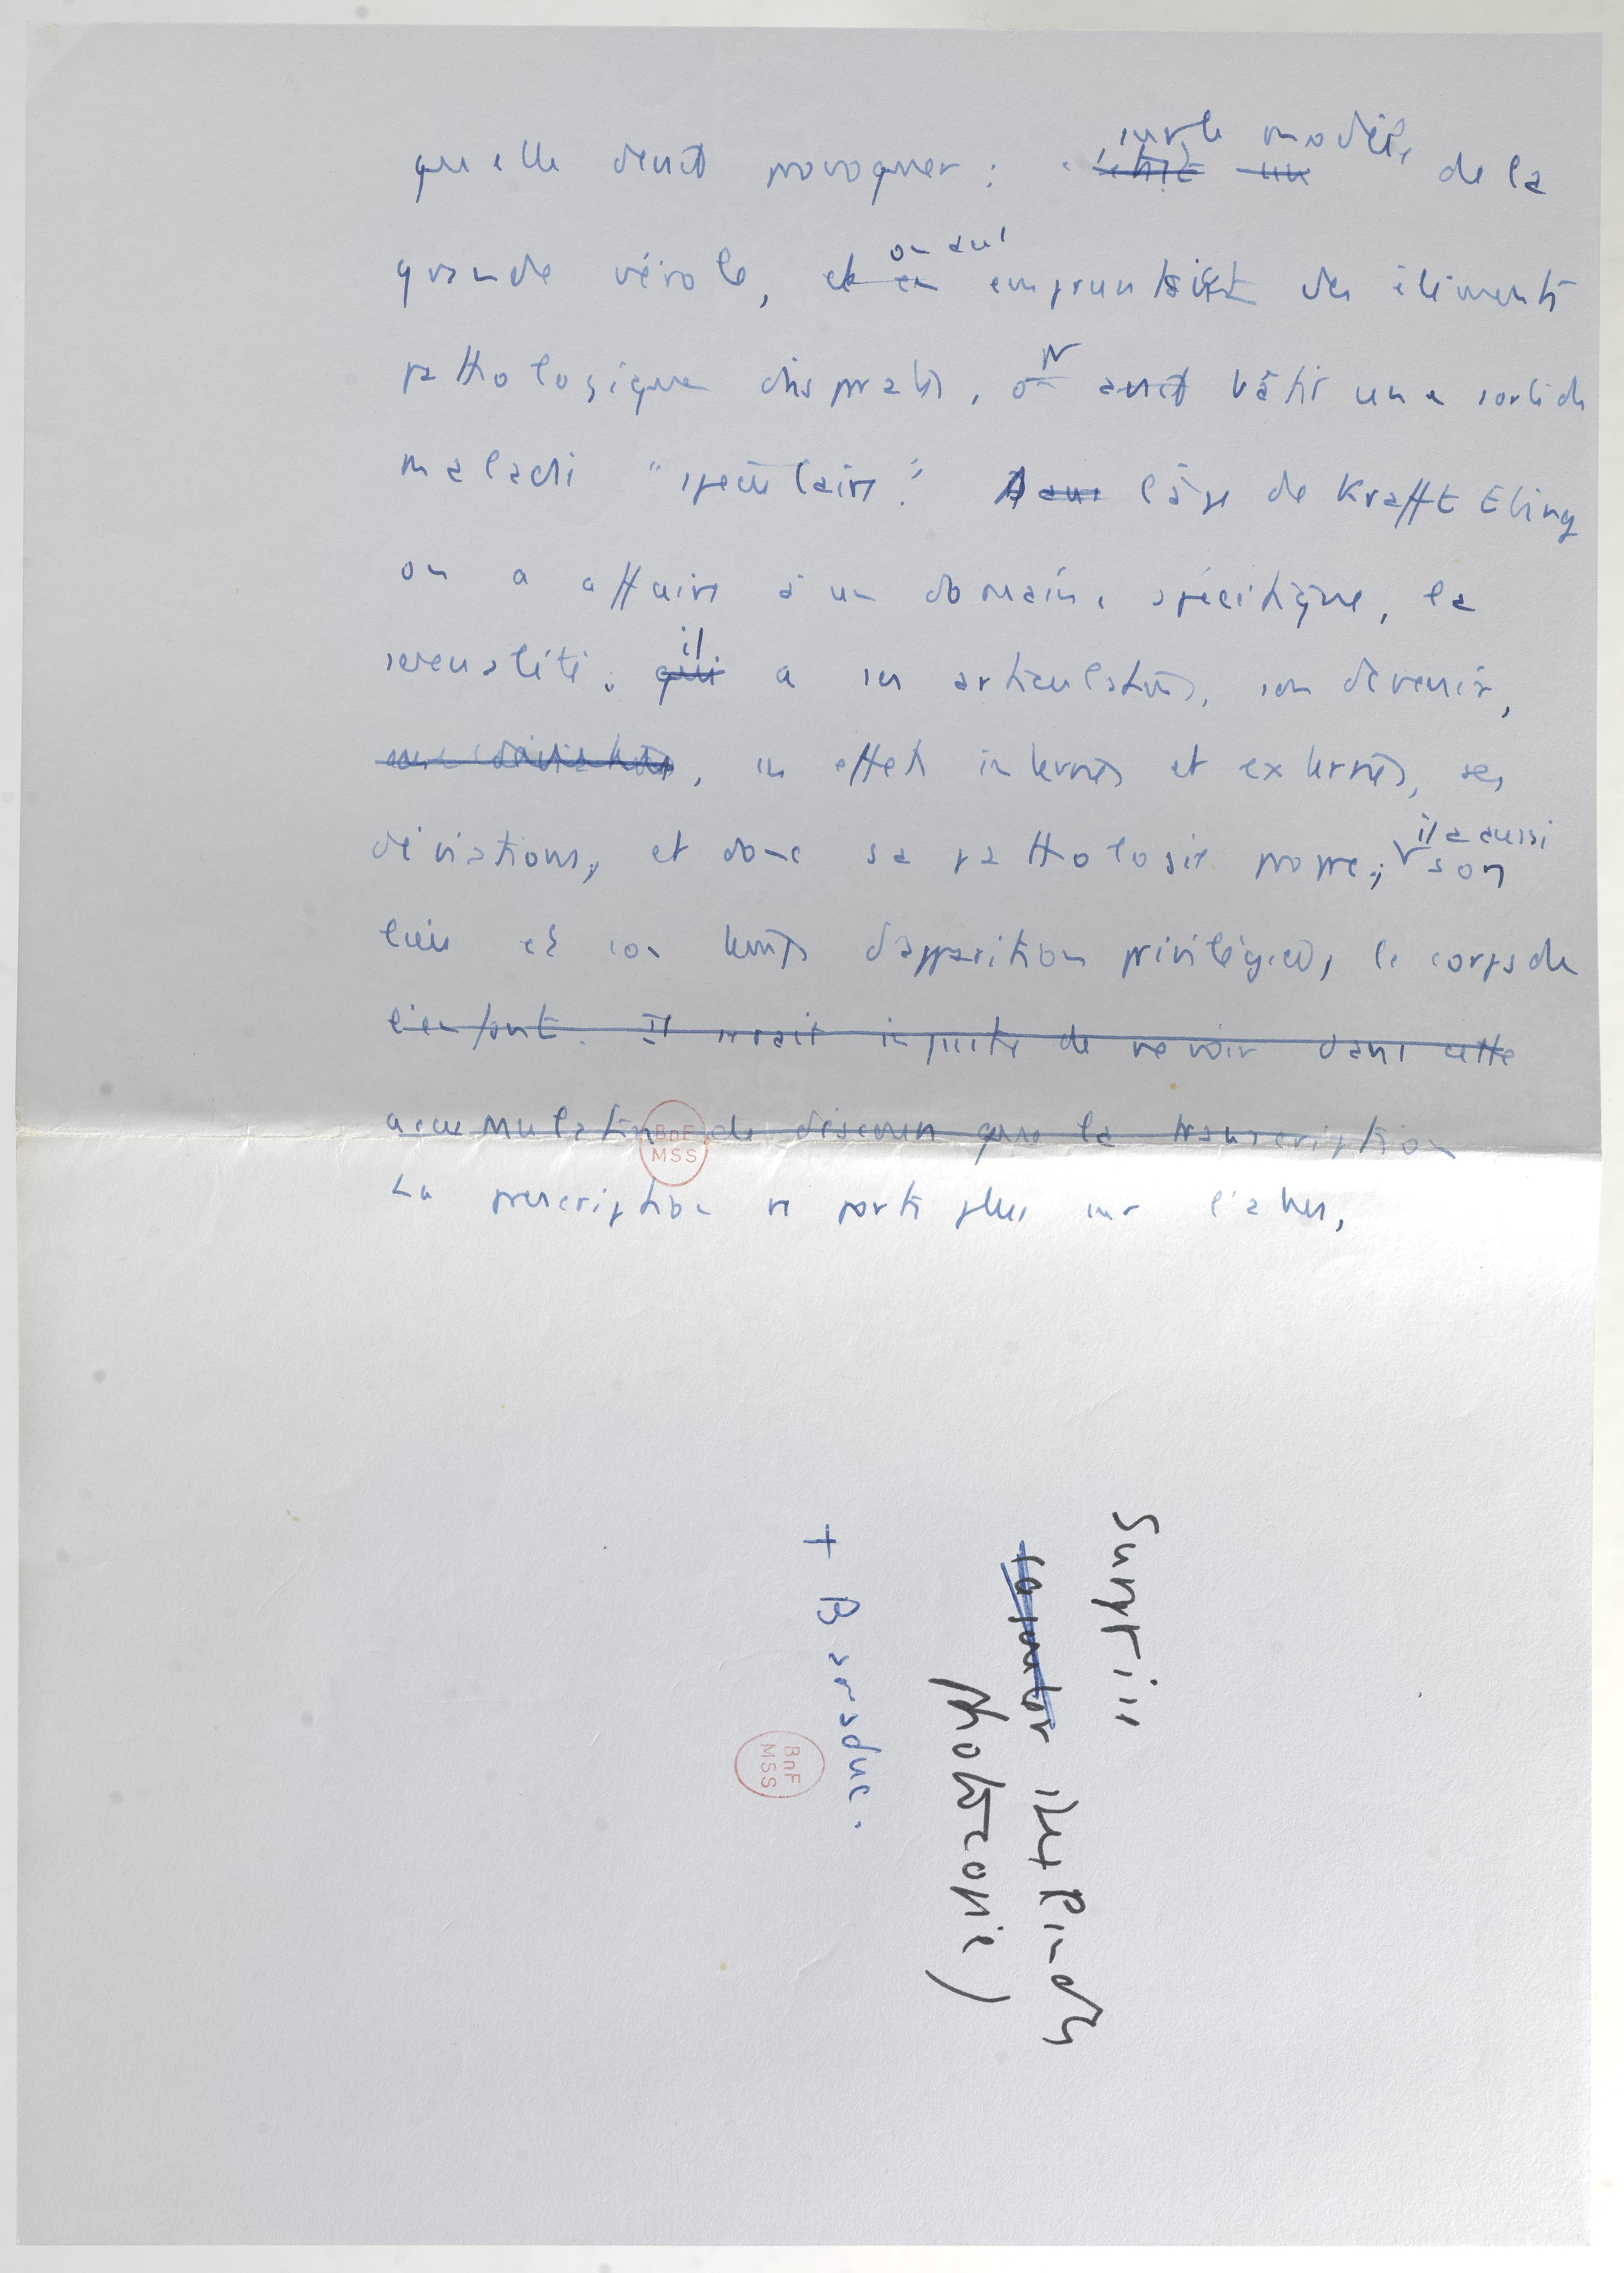 qu'elle devait provoquer : sur le modèle de la
grande vérole, et en on avait empruntait des éléments
pathologiques disparates, on avait bâtir une sorte de
maladie "spéculaire". Dans l'âge de Krafft Ebing
on a affaire à un domaine spécifique, la
sexualité ; qui il a ses articulations, son devenir,
ses effets internes et externes, ses
déviations, et donc sa pathologie propre ; il a aussi son
lieu et son temps d'apparition privilégiés, le corps de
l'enfant. Il serait injuste de ne voir dans cette
accumulation de discours que la transcription
La prescription ne porte plus sur l'abus,
BnF
MSS
Surplis
photocopie)
+ B
BnF
MSS